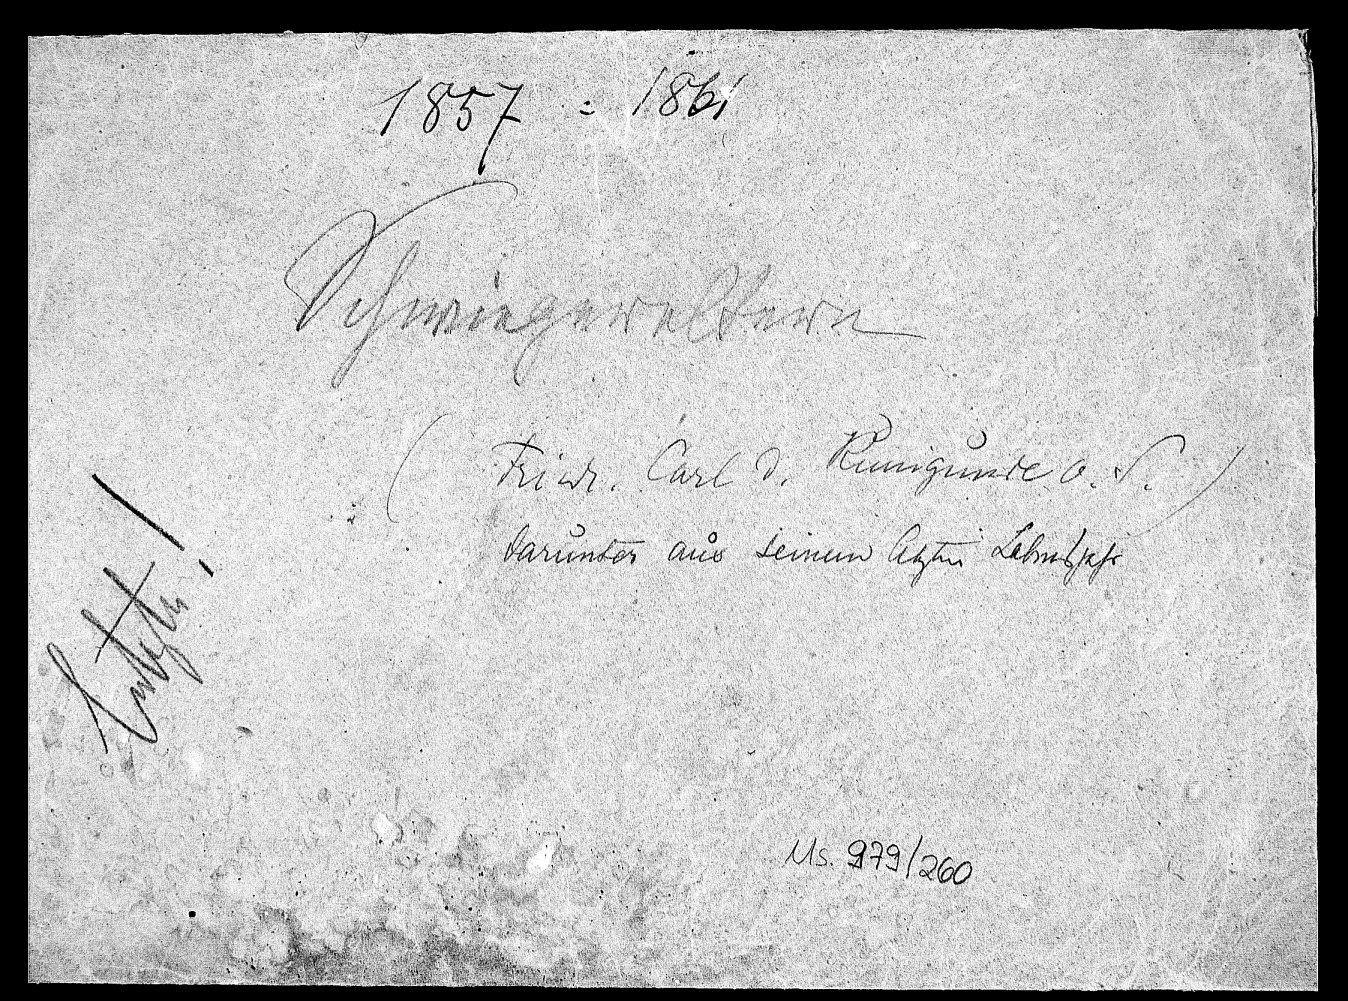 1857 = 1861
Schwiegereltern
( Friedr. Carl d. Kunigunde v. S. )
darunter aus seinem letzten Lebensjahr
Ms. 979/260